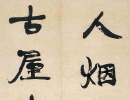 人烟
古屋